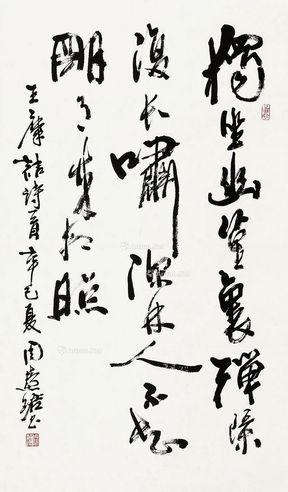 獨坐幽篁裏彈琴
復長嘯深林人不知
明月來相照
王摩詰詩一首辛巳夏周慧珺書